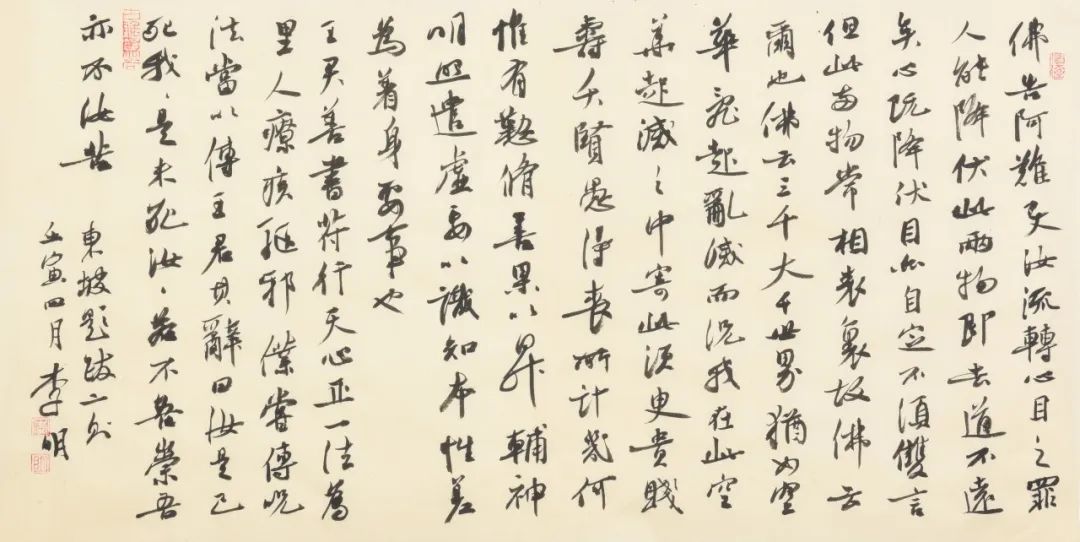 佛告阿難汝流轉心目之罪
人能降伏此兩物即去道不遠
矣心既降伏目亦自定不須雙言
但此兩物常相表裏故佛云
爾也佛云三千大千世界猶如空
華亂起亂滅而況我在此空
華起滅之中寄此須臾貴賤
壽夭賢愚得喪所計幾何
惟有勤脩善果以昇輔神
明照遣虛妄以識知本性差
為着身要事也
王君善書符行天心正一法為
里人療疾驅邪僕嘗傳呪
法當以傳王君其辭曰汝是已
死我々是未死汝々若不吾祟吾
亦不汝苦
東坡題跋二則
壬寅四月李明